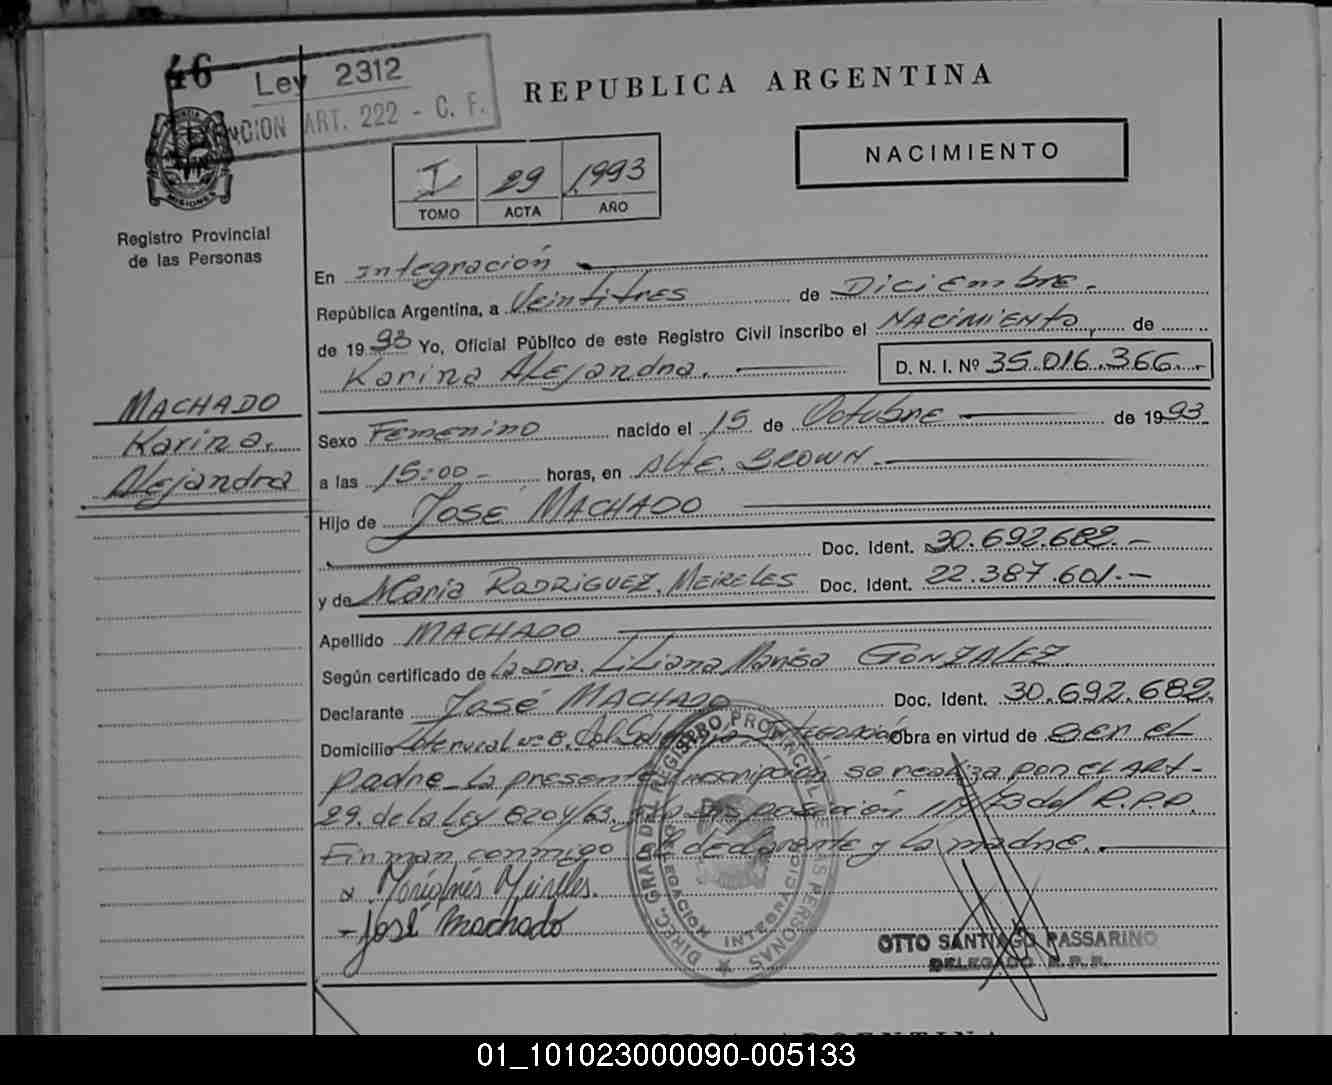 46
Ley 2312
ART. 222 - C. F.
REPUBLICA ARGENTINA
NACIMIENTO
I 29 1993
TOMO ACTA AÑO
MISIONES
Registro Provincial
de las Personas
En Integración
República Argentina, a Veintitres de Diciembre.
de 1993 Yo, Oficial Público de este Registro Civil inscribo el NACIMIENTO, de
Karina Alejandra. D. N. I. Nº 35.016.366.-
MACHADO
Karina.
Alejandra
Sexo Femenino nacido el 15 de Octubre de 1993.
a las 15:00 - horas, en Alte. BROWN.
Hijo de José MACHADO
Doc. Ident. 30.692.682.-
y de María RODRIGUEZ. MEIRELES Doc. Ident. 22.387.601.-
Apellido MACHADO
Según certificado de La Dra. Liliana Marisa GONZALEZ
Declarante José MACHADO Doc. Ident. 30.692.682.
Domicilio Nº 8. INTEGRACIÓN Obra en virtud de ser el
padre_La presente inscripción se realiza por el Art-
29. de la Ley 8204/63. y la Disposición del R.P.P.
Firman conmigo el declarante y la madre..
Meireles.
- José Machado
DIREC. GRAL. DEL REGISTRO PROVINCIAL DE LAS PERSONAS
DELEGACION INTEGRACION
OTTO SANTIAGO PASSARINO
DELEGADO R.P.P.
01_101023000090-005133